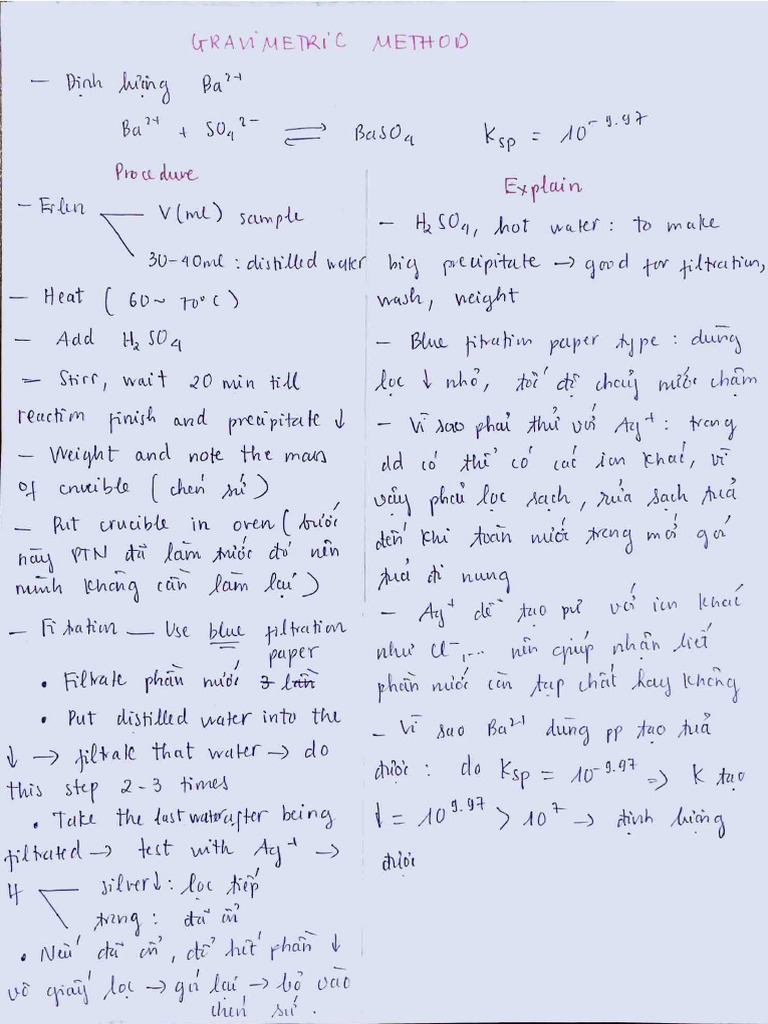 GRAVIMETRIC METHOD
— Định lượng Ba²⁺
Ba²⁺ + SO₄²⁻ ⇌ BaSO₄ Ksp = 10⁻⁹·⁹⁷
Procedure
— Erlen
V(ml) sample
30-40ml : distilled water
— Heat ( 60 ~ 70°C )
— Add H₂SO₄
— Stirr, wait 20 min till
reaction finish and precipitate ↓
— Weight and note the mass
of crucible ( chén sứ )
— Put crucible in oven ( bước
này PTN đã làm trước đó nên
mình không cần làm lại )
— Fitration — Use blue filtration
paper
• Filtrate phần nước 3 lần
• Put distilled water into the
↓ → filtrate that water → do
this step 2-3 times
• Take the last water after being
filtrated → test with Ag⁺ →
If
silver↓ : lọc tiếp
trong : đã ổn
• Nếu đã ổn, đổ hết phần ↓
vô giấy lọc → gói lại → bỏ vào
chén sứ.
Explain
— H₂SO₄, hot water : to make
big precipitate → good for filtration,
wash, weight
— Blue fitration paper type : dùng
lọc ↓ nhỏ, tốc độ chảy nước chậm
— Vì sao phải thử với Ag⁺ : trong
dd có thể có các ion khác, vì
vậy phải lọc sạch, rửa sạch tủa
đến khi toàn nước trong mới gói
tủa đi nung
— Ag⁺ dễ tạo pứ với ion khác
như Cl⁻,... nên giúp nhận biết
phần nước còn tạp chất hay không
— Vì sao Ba²⁺ dùng pp tạo tủa
được : do Ksp = 10⁻⁹·⁹⁷ => K tạo
↓ = 10⁹·⁹⁷ > 10⁷ → định lượng
được